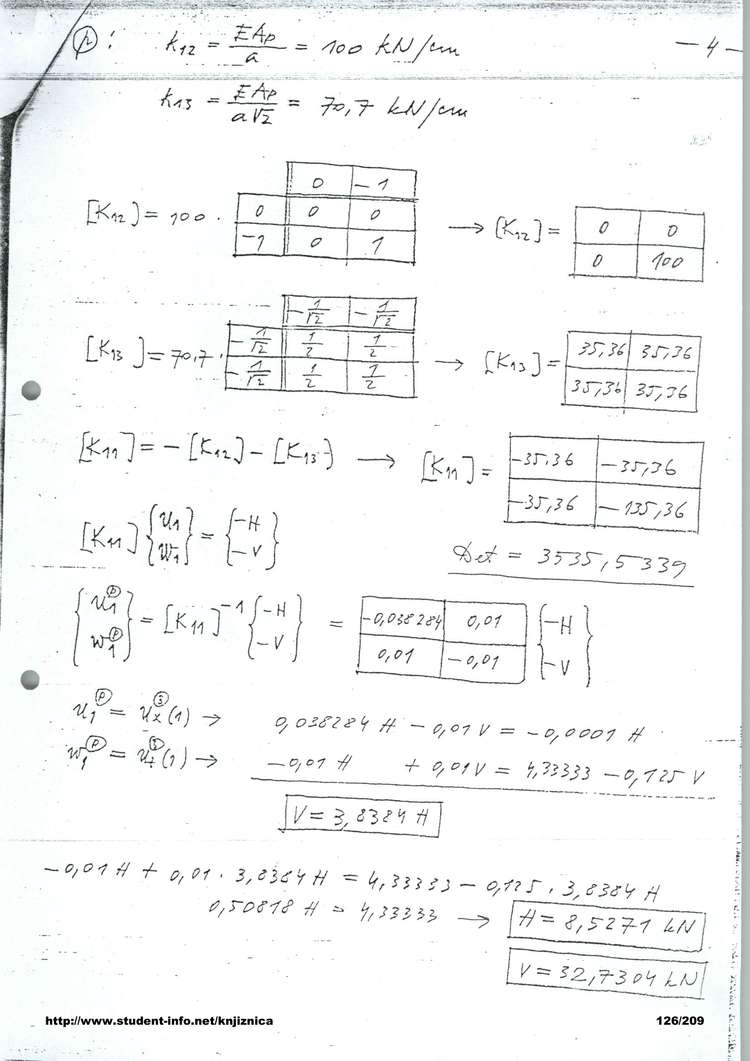 (p): k12 = EAp/a = 100 kN/cm — 4 —
k13 = EAp/a√2 = 70,7 kN/cm
0 | -1
[K12] = 100 · 0 | 0 | 0 → [K12] = 0 | 0
-1 | 0 | 1 0 | 100
-1/√2 | -1/√2
[K13] = 70,7 · -1/√2 | 1/2 | 1/2 → [K13] = 35,36 | 35,36
-1/√2 | 1/2 | 1/2 35,36 | 35,36
[K11] = -[K12] - [K13] → [K11] = -35,36 | -35,36
-35,36 | -135,36
[K11] {u1 w1} = {-H -V}
Det = 3535,5339
{u1(p) w1(p)} = [K11]-1 {-H -V} = -0,038284 | 0,01 {-H
0,01 | -0,01 -V}
u1(p) = ux(3)(1) → 0,038284 H - 0,01 V = -0,0001 H
-0,01 H + 0,01 V = 4,33333 - 0,125 V
V = 3,8384 H
-0,01 H + 0,01 · 3,8384 H = 4,33333 - 0,125 · 3,8384 H
0,50818 H = 4,33333 → H = 8,5271 kN
V = 32,7304 kN
http://www.student-info.net/knjiznica 126/209